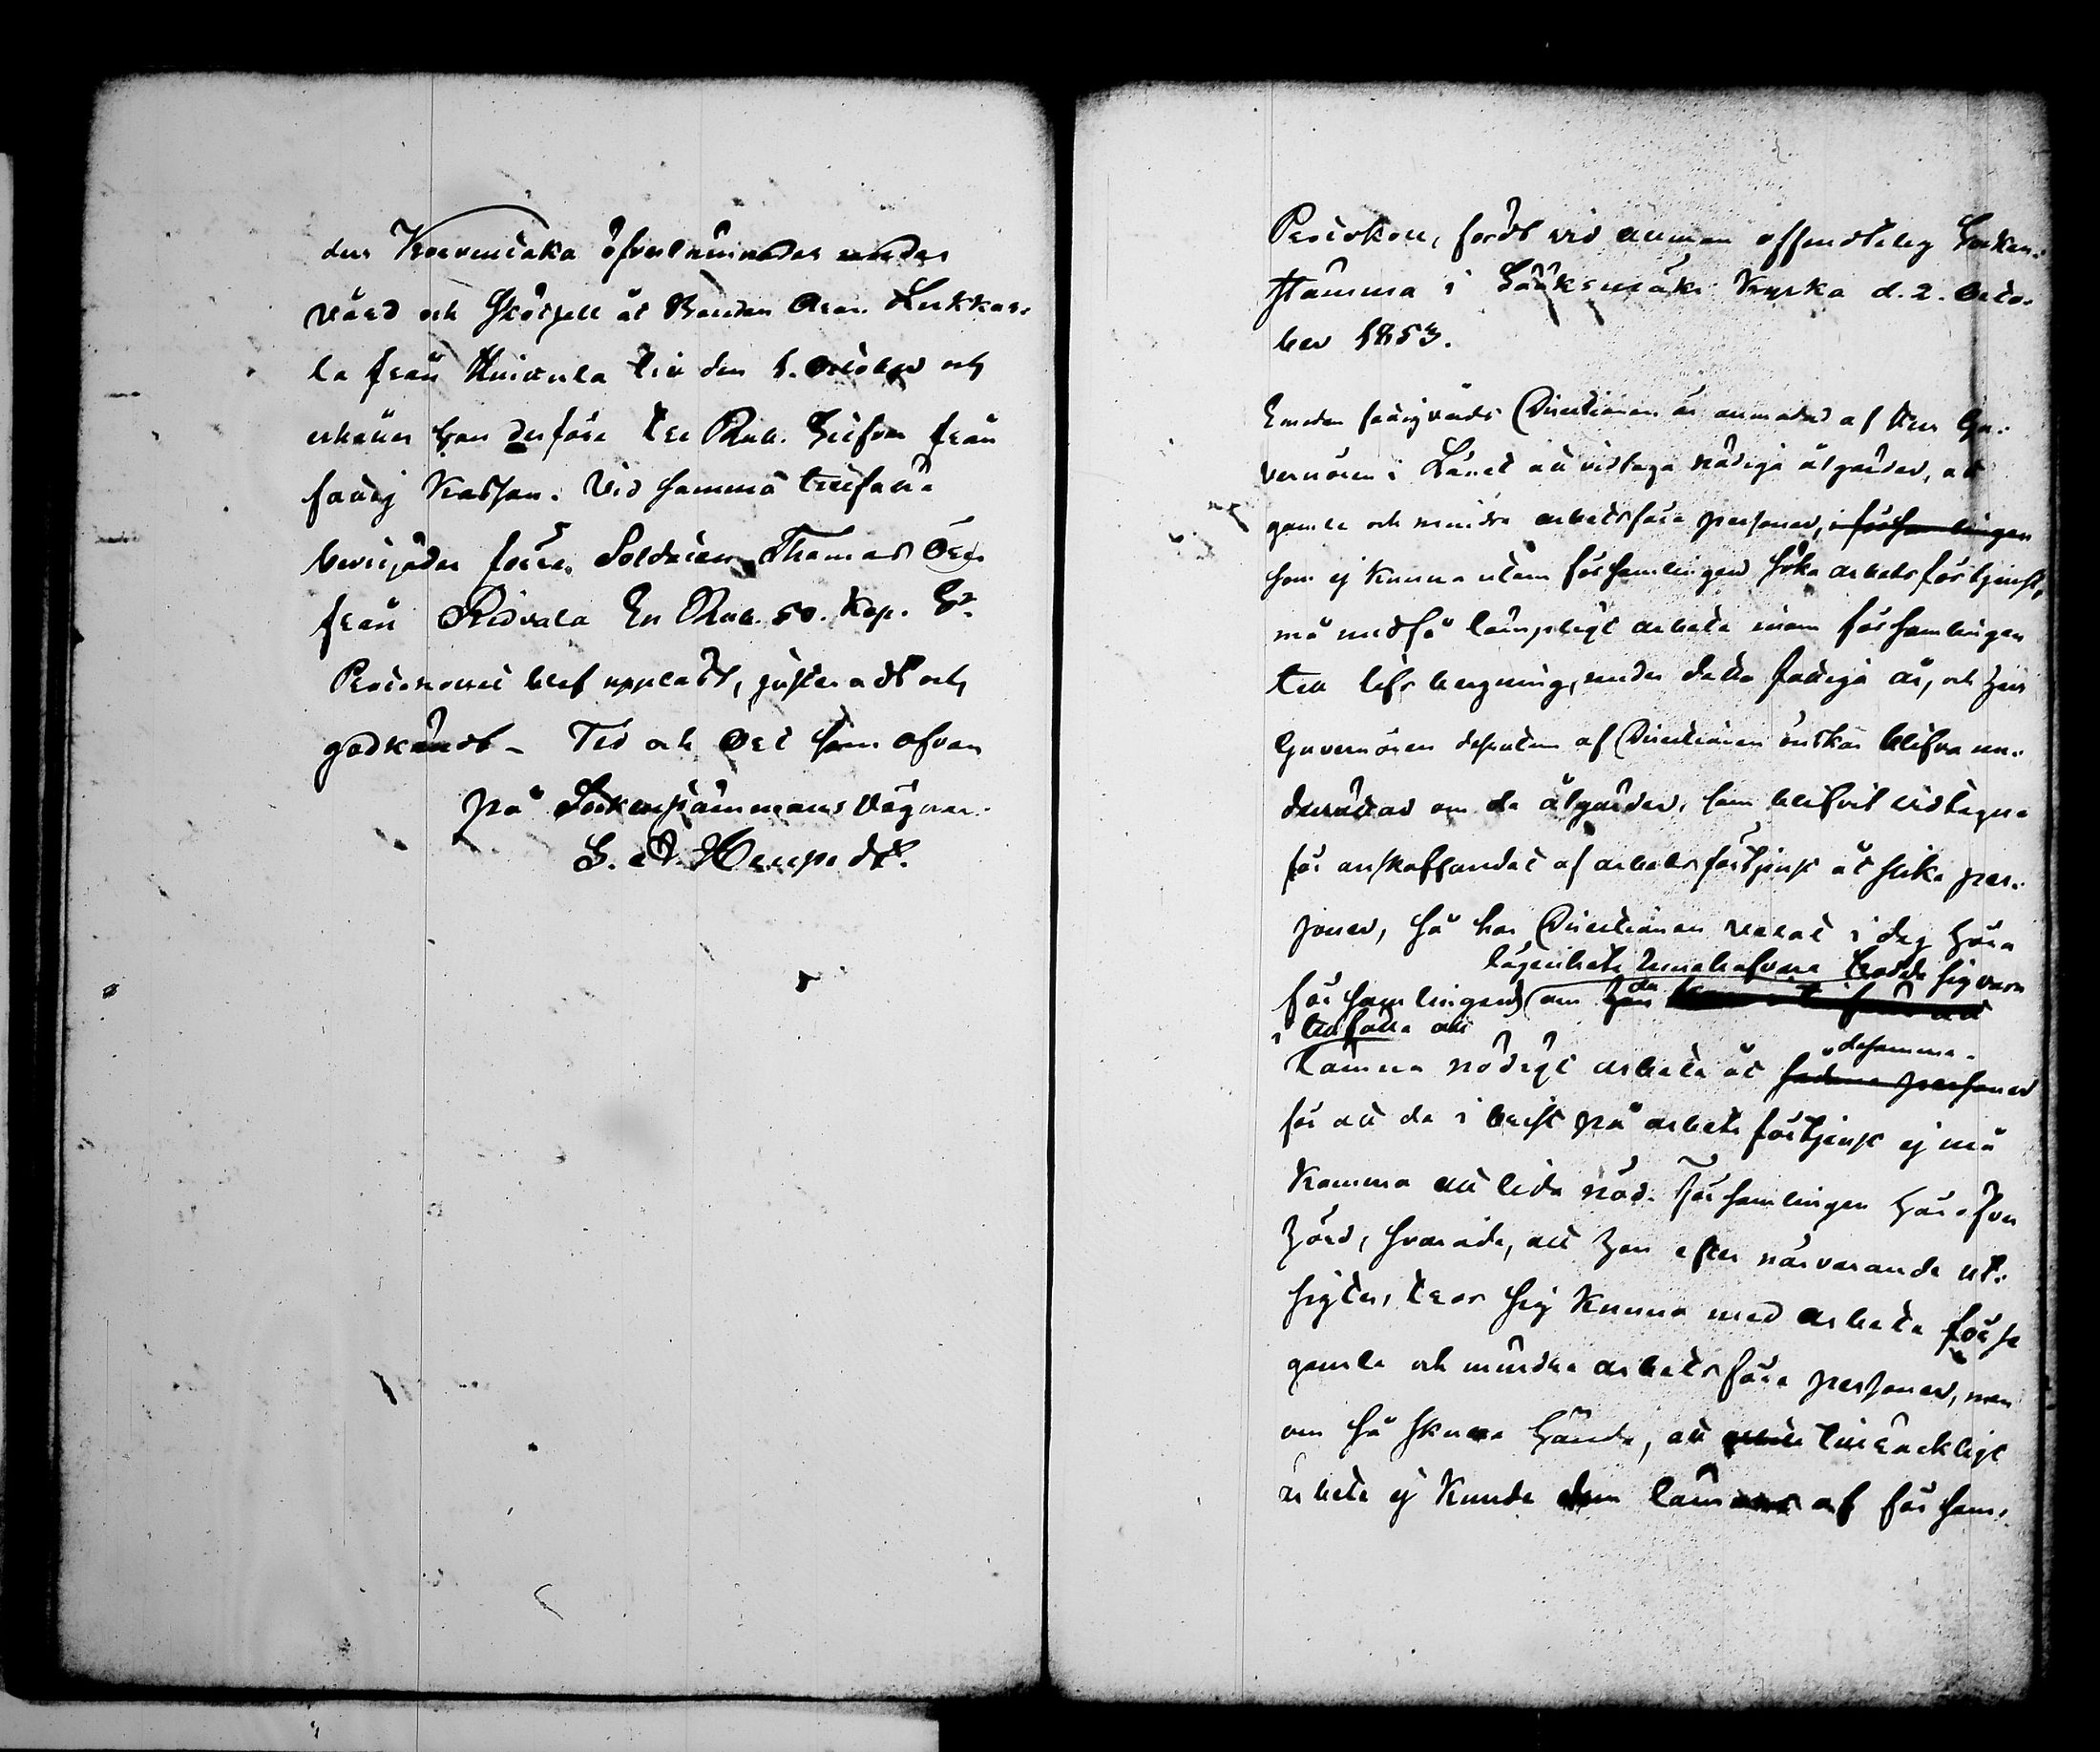 der Korvenjaka öfverlemnades under
vård och skötsell åt Bonden Aron Lukkar-
la från Huittula till den 1. October och
erhåller han derföre tre Rub. Silfver från
fattig Kassan. Vid samma tillfälle
beviljades förre Soldaten Thomas Örn
från Ridvala En Rub. 50. Kop. Sr.
Protocollet blef uppläst, justeradt och
godkändt - Tid och Ort som ofvan
på Sockenstämmans vägnar.
G. A. Hempedt.
Protokoll, fördt vid allmän offendtelig Socken-
stämma i Sääksmäki Kyrka d. 2. Octo-
ber 1853.
Emedan fattigvårds Directionen är anmodad af Herr Gu-
vernören i Länet att vidtaga nödiga åtgärder, att
gamle och mindre arbetsföra personer, i församlingen
som ej kunna utom församlingen söka arbetsförtjenst,
må undfå lämpligt arbete inom församlingen
till lifsbergning, under detta fattiga år, och herr
Guvernören dessutom af Directionen önskar blifva un-
derrättad om de åtgärder, som blifvit vidtagne
för anskaffandet af arbetsförtjenst åt slika per-
soner, så har Directionen velat i dag höra
lägenhets Innehafvare trodde sig vara
församlingens om de
i tillfälle att
lämna nödigt arbete åt sådana personer
desamma
för att de i brist på arbets förtjenst ej må
komma att lida nöd. Församlingen häröfver
hörd, svarade, att han efter närvarande ut-
sigter, tror sig kunna med arbete förse
gamle och mindre arbetsföra personer, men
om så skulle hända, att tillräckligt
arbete ej kunde dem lämnas af försam-